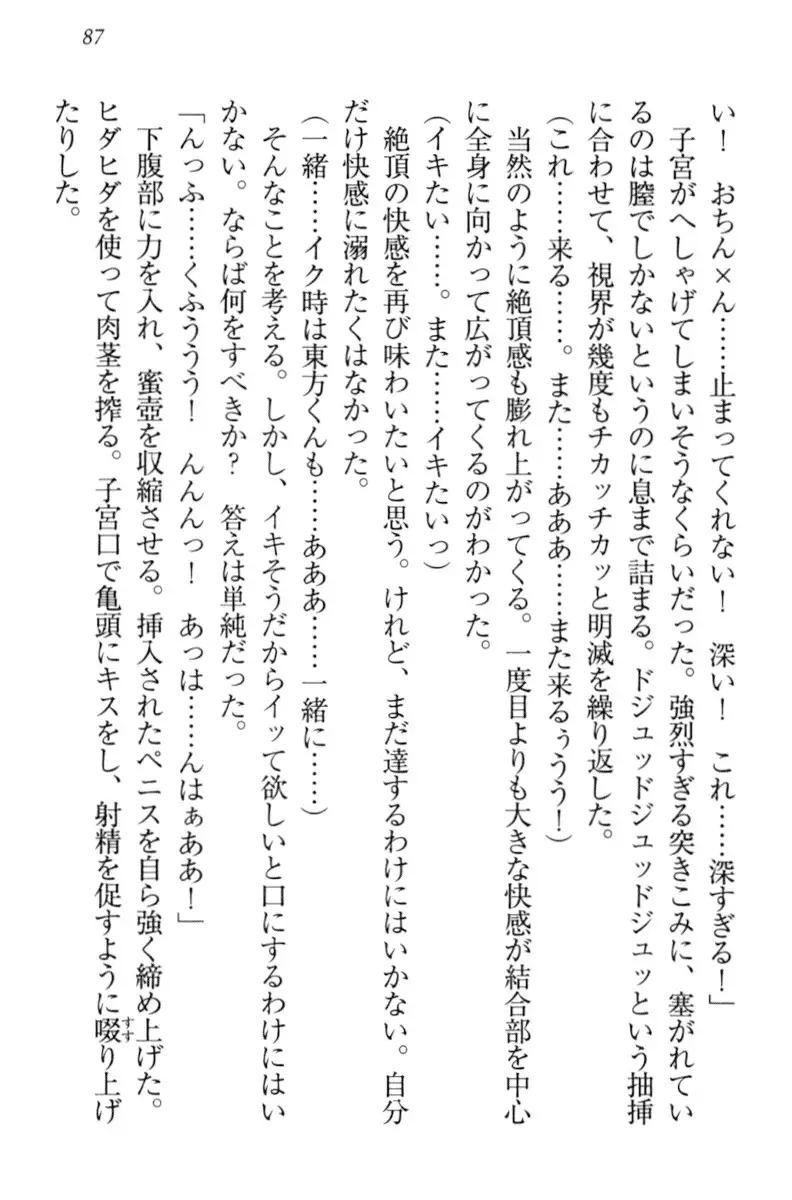 87
い！　おちん×ん……止まってくれない！　深い！　これ……深すぎる！」
　子宮がへしゃげてしまいそうなくらいだった。強烈すぎる突きこみに、塞がれてい
るのは膣でしかないというのに息まで詰まる。ドジュッドジュッドジュッという抽挿
に合わせて、視界が幾度もチカッチカッと明滅を繰り返した。
（これ……来る……。また……あああ……また来るぅうう！）
　当然のように絶頂感も膨れ上がってくる。一度目よりも大きな快感が結合部を中心
に全身に向かって広がってくるのがわかった。
（イキたい……。また……イキたいっ）
　絶頂の快感を再び味わいたいと思う。けれど、まだ達するわけにはいかない。自分
だけ快感に溺れたくはなかった。
（一緒……イク時は東方くんも……あああ……一緒に……）
　そんなことを考える。しかし、イキそうだからイッて欲しいと口にするわけにはい
かない。ならば何をすべきか？　答えは単純だった。
「んっふ……くふううう！　んんんっ！　あっは……んはぁああ！」
　下腹部に力を入れ、蜜壺を収縮させる。挿入されたペニスを自ら強く締め上げた。
ヒダヒダを使って肉茎を搾る。子宮口で亀頭にキスをし、射精を促すように啜り上げ
たりした。